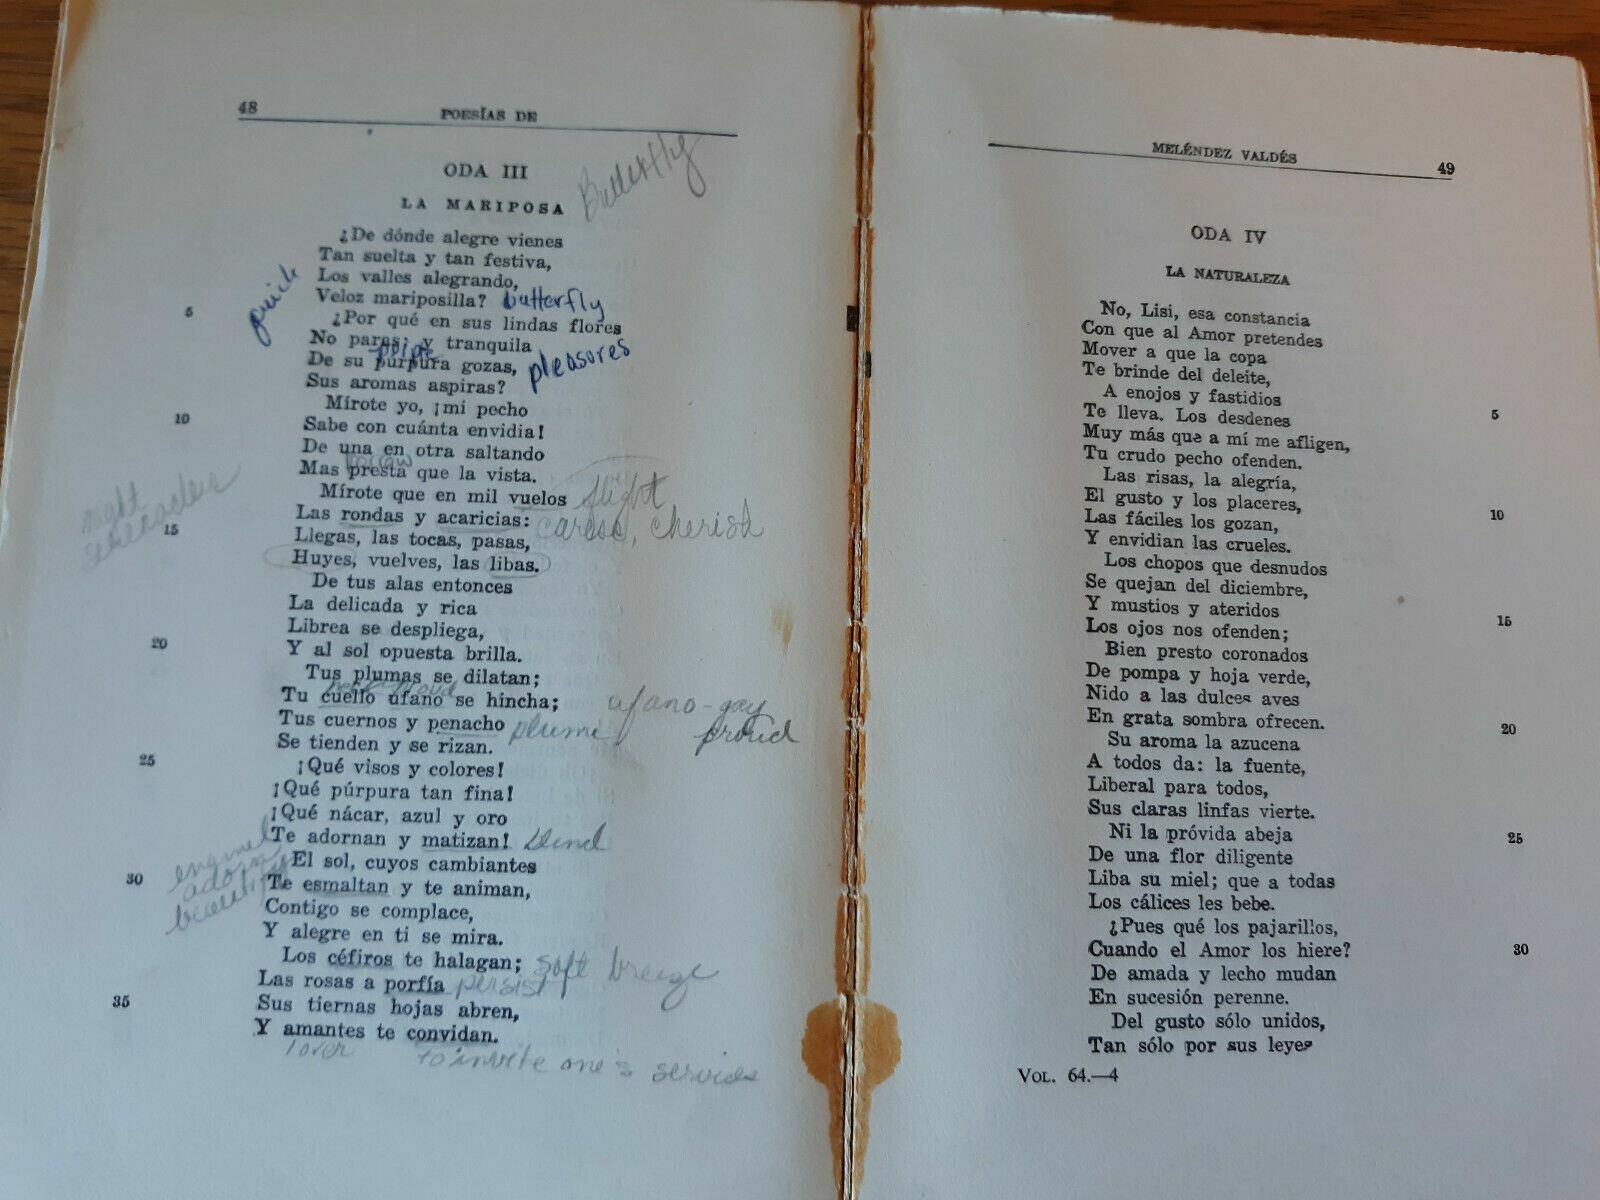 48
POESÍAS DE
ODA III
Butterfly
LA MARIPOSA
¿De dónde alegre vienes
Tan suelta y tan festiva,
Los valles alegrando,
quick
Veloz mariposilla? butterfly
5
¿Por qué en sus lindas flores
No pares; y tranquila
De su púrpura gozas, pleasores
Sus aromas aspiras?
Mírote yo, ¡mi pecho
10
Sabe con cuánta envidia!
De una en otra saltando
Mas presta que la vista.
Mírote que en mil vuelos flight
night
Las rondas y acaricias: caress, cherish
15
Llegas, las tocas, pasas,
Huyes, vuelves, las libas.
De tus alas entonces
La delicada y rica
Librea se despliega,
20
Y al sol opuesta brilla.
Tus plumas se dilatan;
neck proud
Tu cuello ufano se hincha; ufano-gay
proud
Tus cuernos y penacho plume
Se tienden y se rizan.
25
¡Qué visos y colores!
¡Qué púrpura tan fina!
¡Qué nácar, azul y oro
Te adornan y matizan! blend
El sol, cuyos cambiantes
enamel
adorn
beautify
30
Te esmaltan y te animan,
Contigo se complace,
Y alegre en ti se mira.
Los céfiros te halagan; soft breeze
Las rosas a porfía persist
35
Sus tiernas hojas abren,
Y amantes te convidan.
lover to invite one's services
MELÉNDEZ VALDÉS
49
ODA IV
LA NATURALEZA
No, Lisi, esa constancia
Con que al Amor pretendes
Mover a que la copa
Te brinde del deleite,
A enojos y fastidios
5
Te lleva. Los desdenes
Muy más que a mí me afligen,
Tu crudo pecho ofenden.
Las risas, la alegría,
El gusto y los placeres,
10
Las fáciles los gozan,
Y envidian las crueles.
Los chopos que desnudos
Se quejan del diciembre,
Y mustios y ateridos
15
Los ojos nos ofenden;
Bien presto coronados
De pompa y hoja verde,
Nido a las dulces aves
En grata sombra ofrecen.
20
Su aroma la azucena
A todos da: la fuente,
Liberal para todos,
Sus claras linfas vierte.
Ni la próvida abeja
25
De una flor diligente
Liba su miel; que a todas
Los cálices les bebe.
¿Pues qué los pajarillos,
Cuando el Amor los hiere?
30
De amada y lecho mudan
En sucesión perenne.
Del gusto sólo unidos,
Tan sólo por sus leyes
VOL. 64.—4